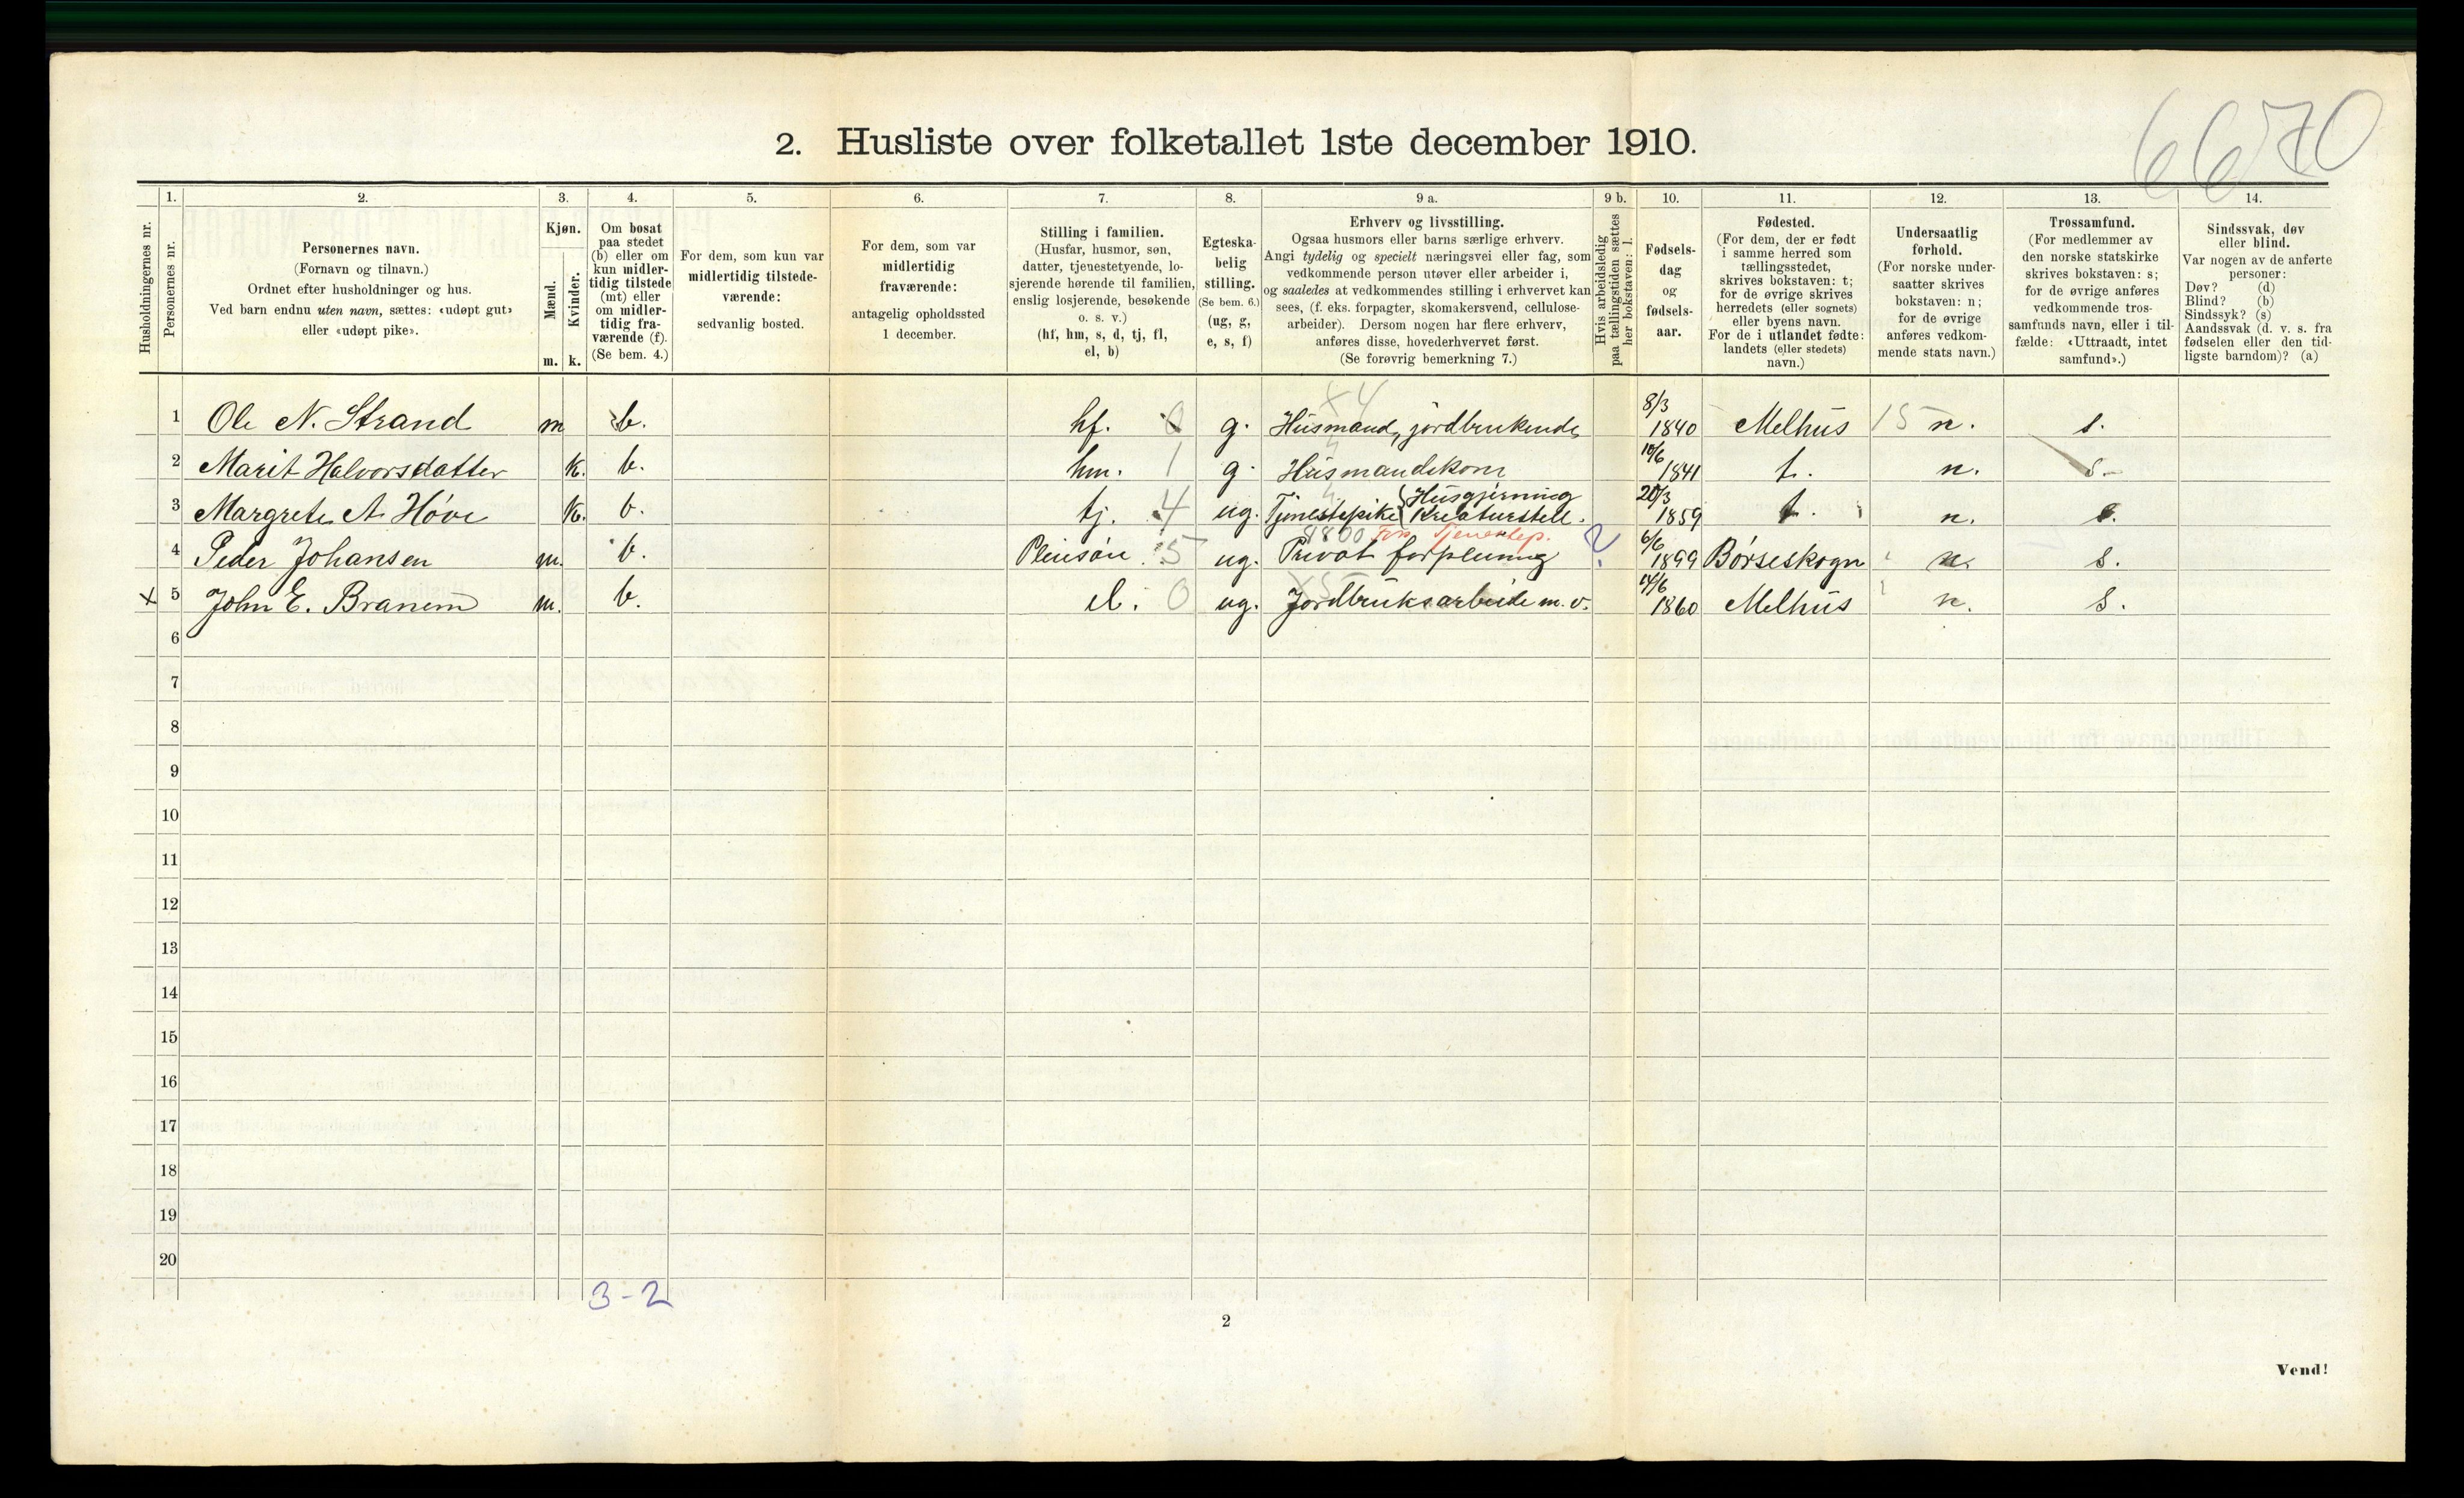 6670
2. Husliste over folketallet 1ste december 1910.
Husholdningernes nr.
1.
Personernes nr.
2.
Personernes navn.
(Fornavn og tilnavn.)
Ordnet efter husholdninger og hus.
Ved barn endnu uten navn, sættes: «udøpt gut»
eller «udøpt pike».
3.
Kjøn.
Mænd.
Kvinder.
m. k.
4.
Om bosat
paa stedet
(b) eller om
kun midler-
tidig tilstede
(mt) eller
om midler-
tidig fra-
værende (f).
(Se bem. 4.)
5.
For dem, som kun var
midlertidig tilstede-
værende:
sedvanlig bosted.
6.
For dem, som var
midlertidig
fraværende:
antagelig opholdssted
1 december.
7.
Stilling i familien.
(Husfar, husmor, søn,
datter, tjenestetyende, lo-
sjerende hørende til familien,
enslig losjerende, besøkende
o. s. v.)
(hf, hm, s, d, tj, fl,
el, b)
8.
Egteska-
belig
stilling.
(Se bem. 6.)
(ug, g,
e, s, f)
9 a.
Erhverv og livsstilling.
Ogsaa husmors eller barns særlige erhverv.
Angi tydelig og specielt næringsvei eller fag, som
vedkommende person utøver eller arbeider i,
og saaledes at vedkommendes stilling i erhvervet kan
sees, (f. eks. forpagter, skomakersvend, cellulose-
arbeider). Dersom nogen har flere erhverv,
anføres disse, hovederhvervet først.
(Se forøvrig bemerkning 7.)
9 b.
Hvis arbeidsledig
paa tællingstiden sættes
her bokstaven: l.
10.
Fødsels-
dag
og
fødsels-
aar.
11.
Fødested.
(For dem, der er født
i samme herred som
tællingsstedet,
skrives bokstaven: t;
for de øvrige skrives
herredets (eller sognets)
eller byens navn.
For de i utlandet fødte:
landets (eller stedets)
navn.)
12.
Undersaatlig
forhold.
(For norske under-
saatter skrives
bokstaven: n;
for de øvrige
anføres vedkom-
mende stats navn.)
13.
Trossamfund.
(For medlemmer av
den norske statskirke
skrives bokstaven: s;
for de øvrige anføres
vedkommende tros-
samfunds navn, eller i til-
fælde: «Uttraadt, intet
samfund».)
14.
Sindssvak, døv
eller blind.
Var nogen av de anførte
personer:
Døv? (d)
Blind? (b)
Sindssyk? (s)
Aandssvak (d. v. s. fra
fødselen eller den tid-
ligste barndom)? (a)
1 Ole N. Strand m b. hf. 0 g. Husmand, jordbrukende 8/3 1840 Melhus 15 n. s.
2 Marit Halvorsdatter k. b. hm. 1 g. Husmandskone 10/6 1841 t. n. s.
3 Margrete A. Høve k. b. tj. 4 ug. Tjenestepike { Husgjerning Kreaturstell. 20/3 1859 t. n. s.
4 Peder Johansen m. b. Pleiesøn 5 ug. Privat forpleining ? 6/6 1899 Børseskogn n. s.
x 5 John E. Branem m. b. el. 0 ug. Jordbruksarbeide m. v. 14/6 1860 Melhus n. s.
6
7
8
9
10
11
12
13
14
15
16
17
18
19
20
3-2
2
Vend!